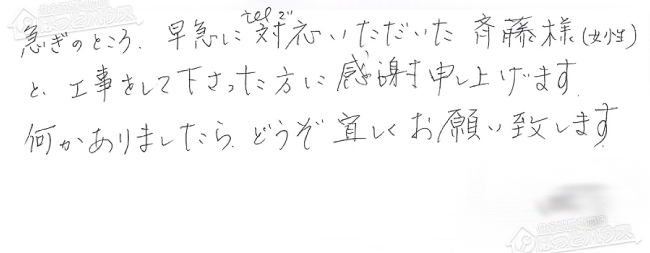 急ぎのところ、早急にtelで対応いただいた 斉藤様(女性)
と、工事をして下さった方に感謝申し上げます。
何かありましたら、どうぞ宜しくお願い致します